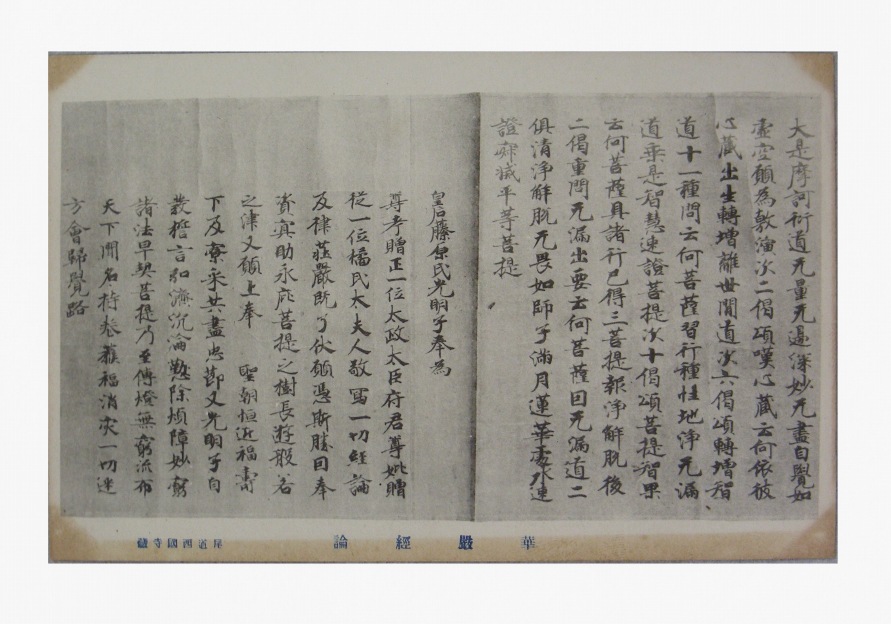 大是摩訶衍道无量无邊深妙无盡自覺如
虛空願為敷演次二偈頌嘆心藏云何依彼
心藏出生轉增離世間道次六偈頌轉增智
道十一種問云何菩薩習行種性地淨无漏
道乘是智慧速證菩提次十偈頌菩提智果
云何菩薩具諸行已得三菩提報淨解脫後
二偈重問无漏出要云何菩薩因无漏道二
俱清淨解脫无畏如師子滿月蓮華處水速
證寂滅平等菩提
皇后藤原氏光明子奉為
尊考贈正一位太政太臣府君尊妣贈
從一位橘氏太夫人敬寫一切經論
及律莊嚴既了伏願憑斯勝因奉
資冥助永庇菩提之樹長遊般若
之津又願上奉 聖朝恒延福壽
下及寮采共盡忠節又光明子自
發誓言弘濟沉淪勤除煩障妙窮
諸法早契菩提乃至傳燈無窮流布
天下聞名持卷獲福消灾一切迷
方會歸覺路
華嚴經論
尾道西國寺藏